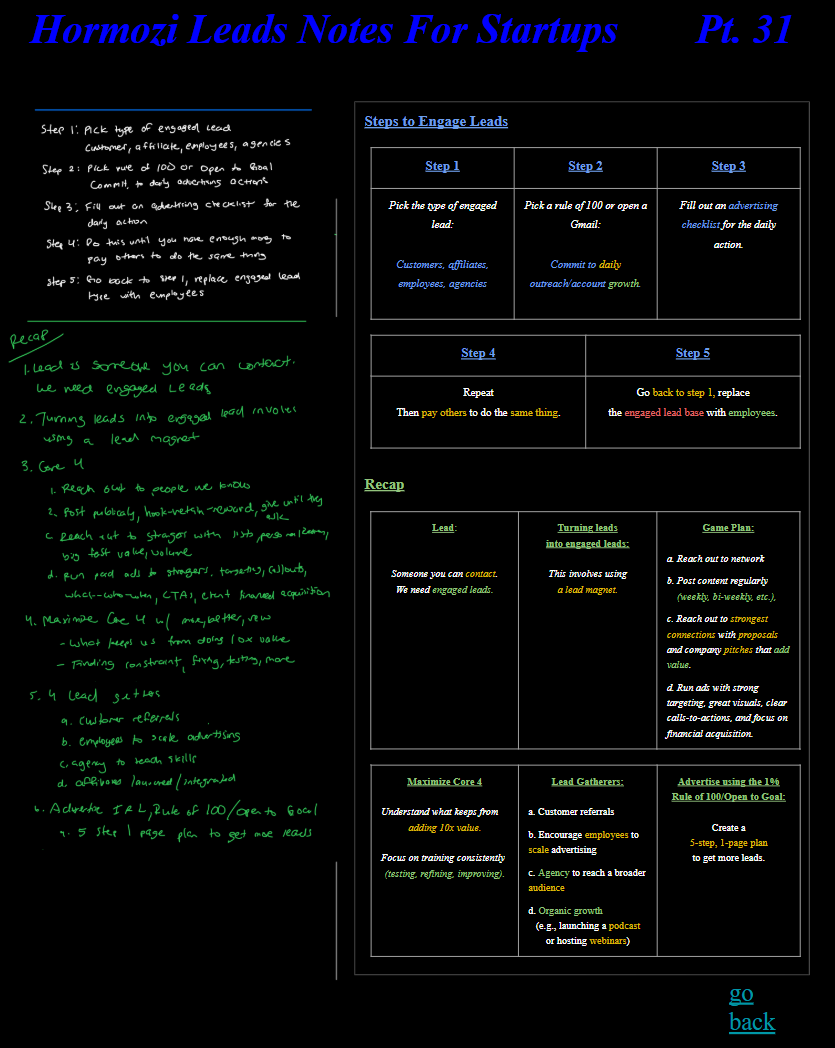 Hormozi Leads Notes For Startups Pt. 31
Step 1: Pick type of engaged lead
customer, affiliate, employees, agencies
Step 2: Pick rule of 100 or Open to Goal
Commit to daily advertising actions
Step 3: Fill out an advertising checklist for the
daily action
Step 4: Do this until you have enough money to
pay others to do the same thing
Step 5: Go back to step 1, replace engaged lead
type with employees
Recap
1. Lead is someone you can contact.
We need engaged Leads
2. Turning leads into engaged lead involves
using a lead magnet
3. Core 4
1. Reach out to people we know
2. Post publicaly, hook-retain-reward, give until they
ask
c. Reach out to strangers with lists, personalization,
big fast value, volume
d. Run paid ads to strangers. targeting, callouts,
what-who-when, CTAs, client financed acquisition
4. Maximize Core 4 w/ more, better, new
- What keeps us from doing 10x value
- Finding constraint, fixing, testing, more
5. 4 Lead getters
a. customer referrals
b. employees to scale advertising
c. agency to teach skills
d. affiliates launched/integrated
6. Advertise IRL, Rule of 100/open to Goal
a. 5 step 1 page plan to get more leads
Steps to Engage Leads
Step 1
Pick the type of engaged
lead:
Customers, affiliates,
employees, agencies
Step 2
Pick a rule of 100 or open a
Gmail:
Commit to daily
outreach/account growth.
Step 3
Fill out an advertising
checklist for the daily
action.
Step 4
Repeat
Then pay others to do the same thing.
Step 5
Go back to step 1, replace
the engaged lead base with employees.
Recap
Lead:
Someone you can contact.
We need engaged leads.
Turning leads
into engaged leads:
This involves using
a lead magnet.
Game Plan:
a. Reach out to network
b. Post content regularly
(weekly, bi-weekly, etc.),
c. Reach out to strongest
connections with proposals
and company pitches that add
value.
d. Run ads with strong
targeting, great visuals, clear
calls-to-actions, and focus on
financial acquisition.
Maximize Core 4
Understand what keeps from
adding 10x value.
Focus on training consistently
(testing, refining, improving).
Lead Gatherers:
a. Customer referrals
b. Encourage employees to
scale advertising
c. Agency to reach a broader
audience
d. Organic growth
(e.g., launching a podcast
or hosting webinars)
Advertise using the 1%
Rule of 100/Open to Goal:
Create a
5-step, 1-page plan
to get more leads.
go
back